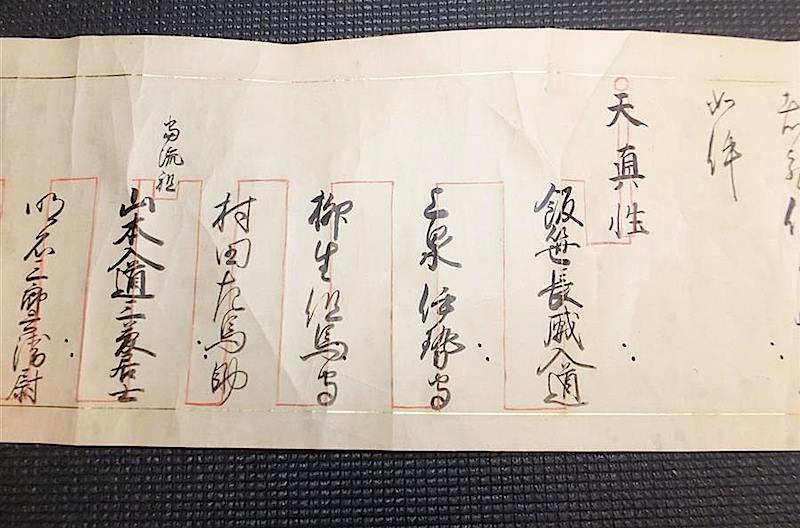 如件
天真性
飯笹長威入道
上泉伊勢守
柳生但馬守
村田左馬助
当流祖
山本入道三 居士
明石